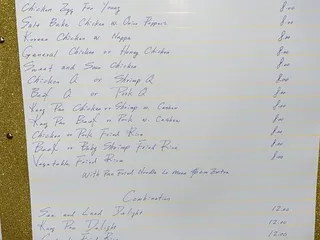 Chicken Egg Foo Young 8.00
Chicken w. Onion Peppers 8.00
Korean Chicken w. Nappa 8.00
General Chicken or Honey Chicken 8.00
Sweet and Sour Chicken 8.00
Chicken Q or Shrimp Q 8.00
Beef Q or Pork Q 8.00
Kung Pao Chicken or Shrimp w. Cashew 8.00
Kung Pao Beef or Pork w. Cashew 8.00
Chicken or Pork Fried Rice 8.00
Beef or Baby Shrimp Fried Rice 8.00
Vegetable Fried Rice 8.00
With Pan Fried Noodle
Combination
Sea and Land Delight 12.00
Kung Pao Delight 12.00
12.00